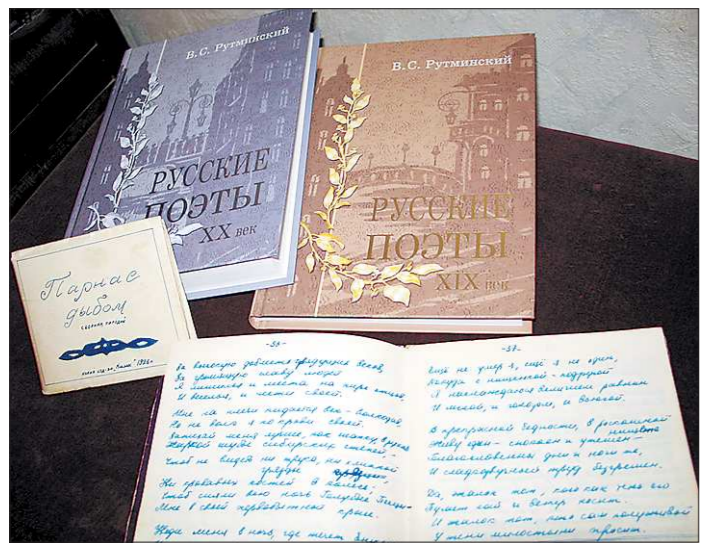 В.С. Рутминский
РУССКИЕ
ПОЭТЫ
XX век
В.С. Рутминский
РУССКИЕ
ПОЭТЫ
XIX век
Парнас
дыбом
сборник пародий
-56-
За гремучую доблесть грядущих веков,
За высокую славу людей
Я лишился и места на пире отцов,
И веселья, и чести своей.
Мне на плечи кидается век - волкодав,
Но не волк я по крови своей.
Запихай меня лучше, как шапку, в рукав
Жаркой шубы сибирских степей.
Чтоб не видеть ни труса, ни хлипкой
грязцы
Ни кровавых костей в колесе,
Чтоб сияли всю ночь голубые песцы
Мне в своей первобытной красе.
Уведи меня в ночь, где течёт
-57-
Ещё не умер я, ещё я не один,
Покуда с нищенкой - подругой
Я наслаждаюсь величием равнин
И мглой, и голодом, и вьюгой.
В прекрасной бедности, в роскошной
нищете
Живу один - спокоен и утешен -
Благословенны дни и ночи те,
И сладкозвучный труд безгрешен.
Да, жалок тот, кого как тень его
Пугает лай и ветер косит.
И жалок тот, кто сам полуживой
У тени милостыни просит.